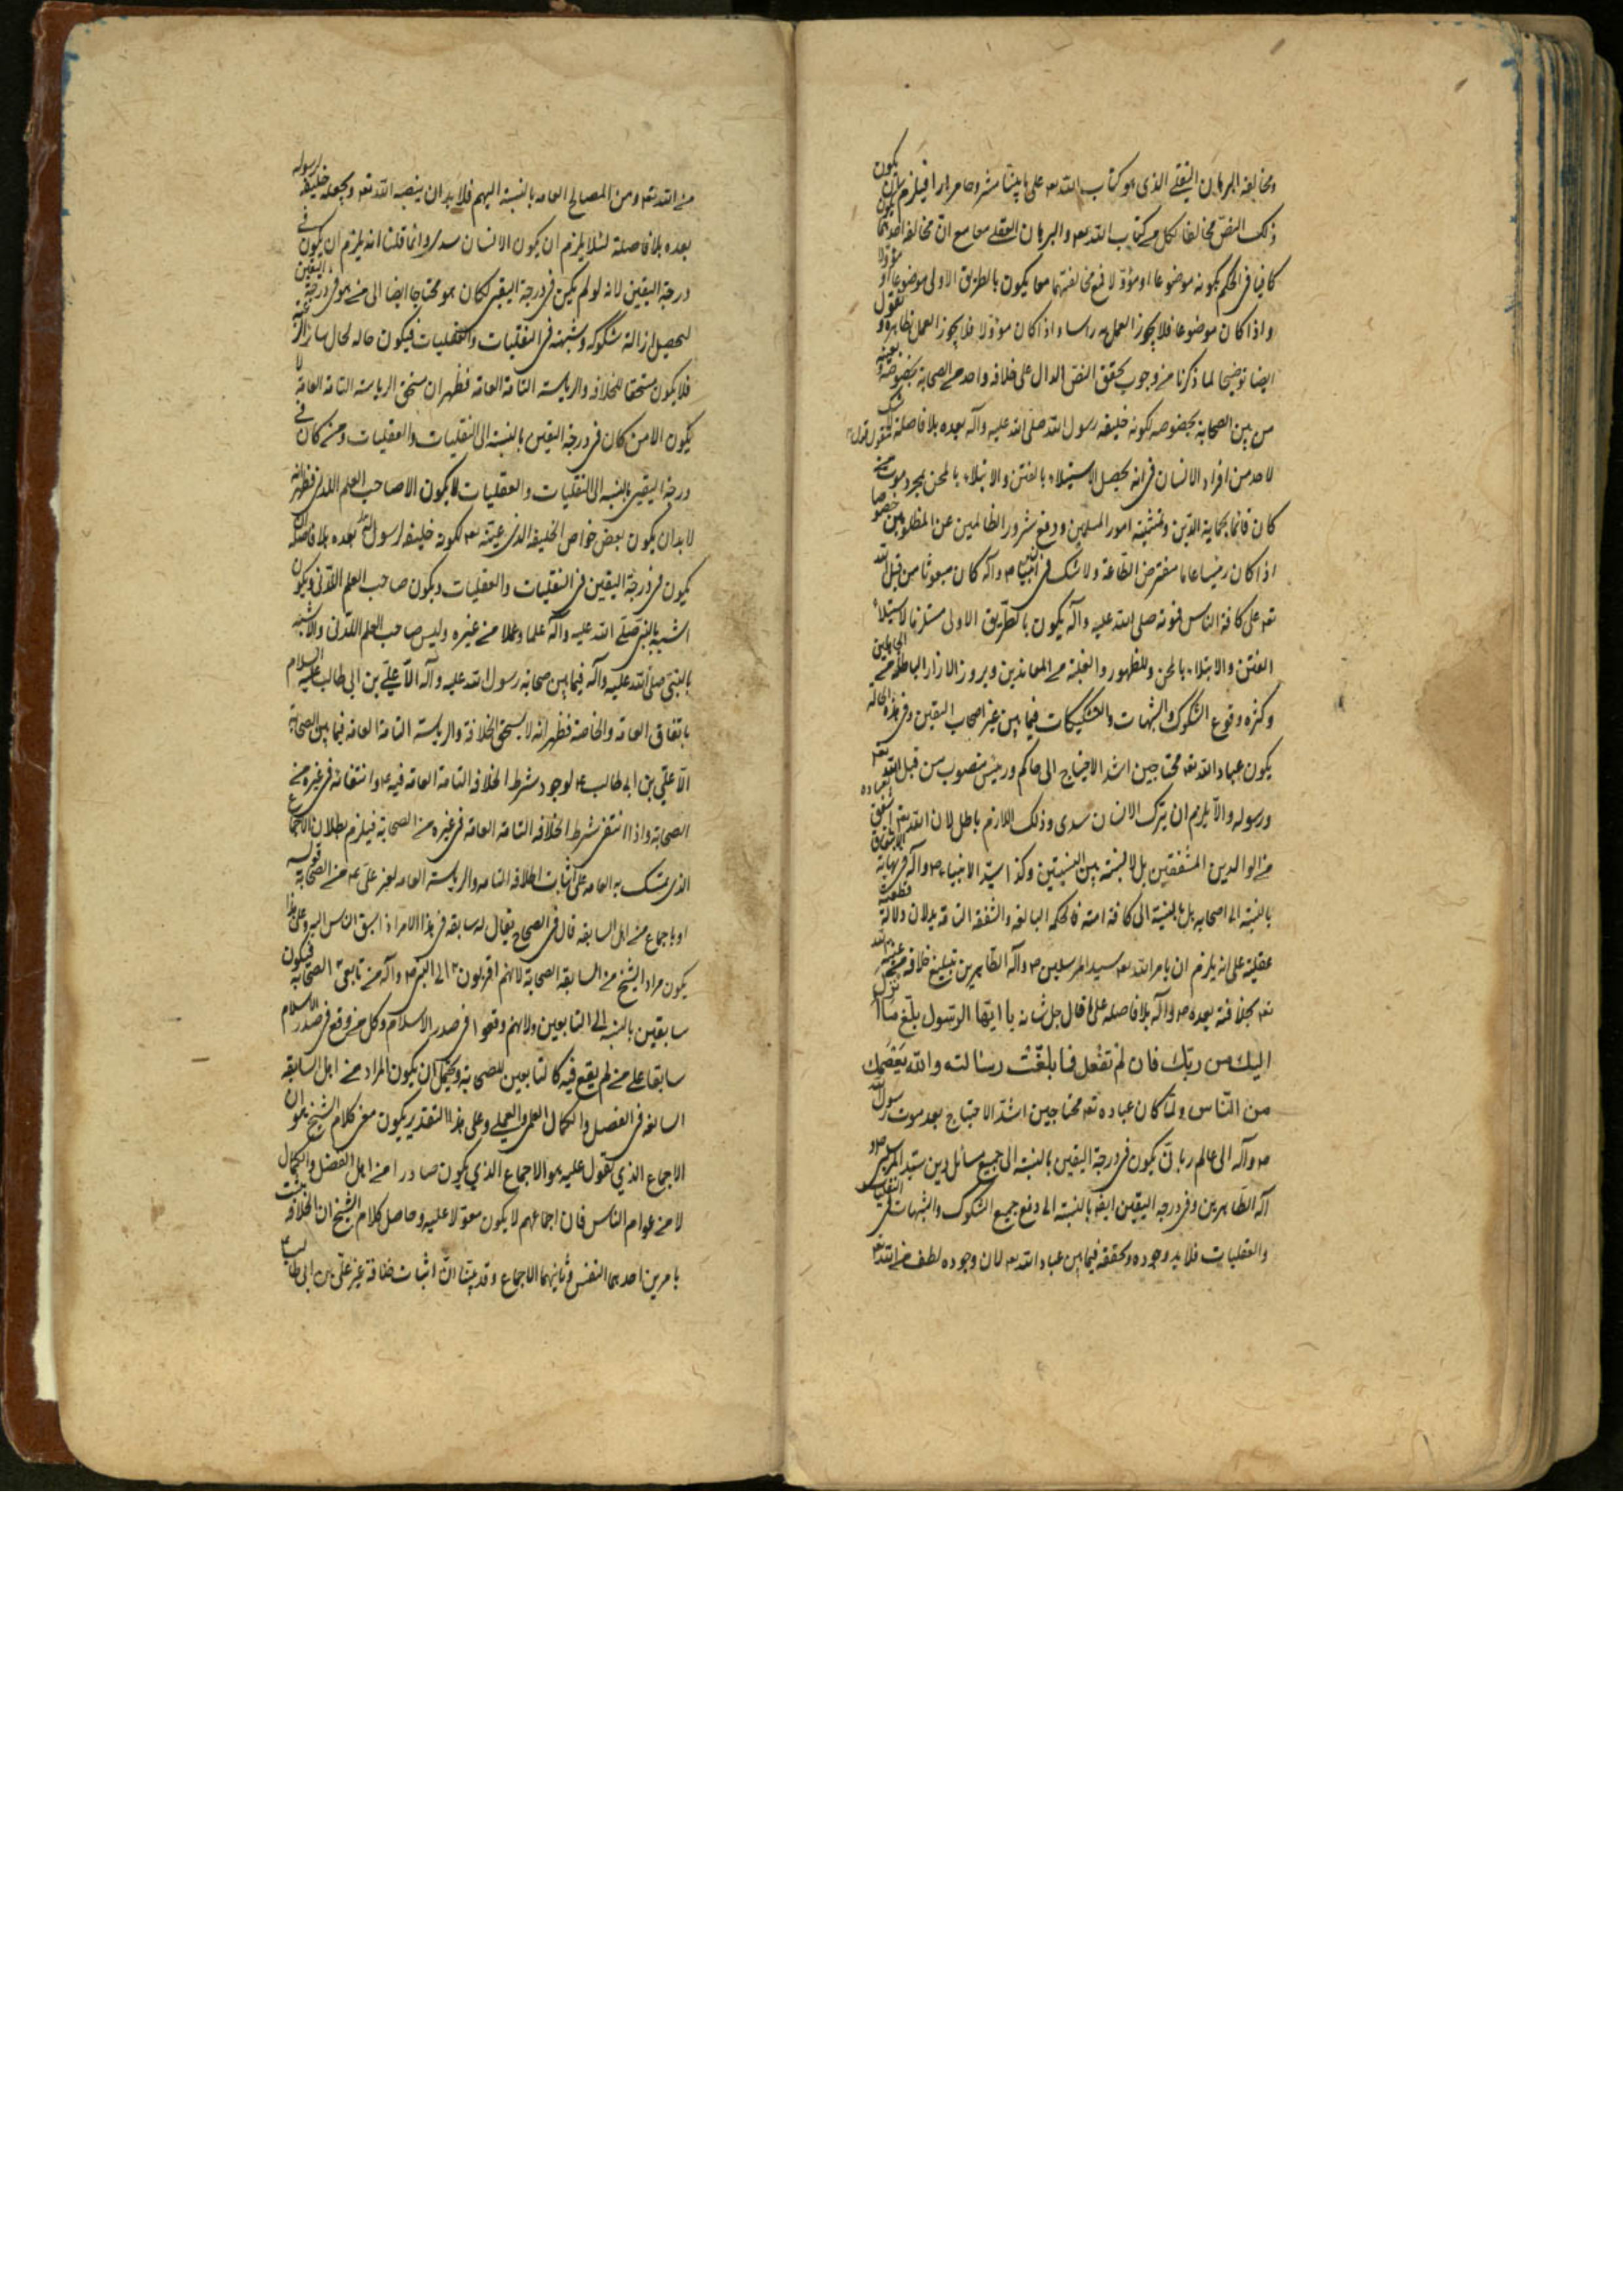 ومخالفة البرهان النقلي الذي هو كتاب الله تعه على ما بينا مشروحا مرارا فيلزم بان يكون
ذلك النص مخالفا لكل من كتاب الله تعه والبرهان العقلي معا مع ان مخالفة احدهما يكون
كافيا في الحكم بكونه موضوعا او مؤوّلا فمع مخالفتهما معا يكون بالطريق الاولى موضوعا او مؤوّلا
واذا كان موضوعا فلا يجوز العمل به راسا واذا كان مؤوّلا فلا يجوز العمل بظاهره ونقول
ايضا توضيحا لما ذكرنا من وجوب تحقق النص الدال على خلافة واحد من الصحابة بخصوصه وبعينه
من بين الصحابة بخصوصه لكونه خليفة رسول الله صلى الله عليه وآله بعده بلا فاصلة نقول لا شك
لاحد من افراد الانسان في انه يحصل الاستيلاء بالفتن والابتلاء بالمحن بمجرد موت من
كان قائما بحماية الدين وتمشية امور المسلمين ودفع شرور الظالمين عن المظلومين خصوصا
اذا كان رئيسا عاما مفترض الطاعة ولا شك في ان نبينا ص وآله كان مبعوثا من قبل الله
تعه على كافة الناس فموته صلى الله عليه وآله يكون بالطريق الاولى مستلزما لاستيلاء
الفتن والابتلاء بالمحن وللظهور والغلبة من المعاندين وبروز الآراء الباطلة من الجاهلين
وكثرة وقوع الشكوك والشبهات والتشكيكات فيما بين غير اصحاب اليقين وفي هذه الحالة
يكون عباد الله تعه محتاجين اشد الاحتياج الى حاكم ورئيس منصوب من قبل الله تعه
ورسوله والا يلزم ان يترك الانسان سدى وذلك اللازم باطل لان الله تعه اشفق بعباده
من الوالدين المشفقين بل لا نسبة بين النسبتين وكذا سيد الانبياء ص وآله في نهاية الاشفاق
بالنسبة الى اصحابه بل بالنسبة الى كافة امته فالحكمة البالغة والشفقة التامة يدلان دلالة قطعية
عقلية على انه يلزم ان يامر الله تعه سيد المرسلين ص وآله الطاهرين بتبليغ خلافة من عينه الله
تعه بخلافته بعده ص وآله بلا فاصلة على ما قال جل شانه يا ايها الرسول بلّغ ما انزل
اليك من ربك فان لم تفعل فما بلّغت رسالته والله يعصمك
من الناس ولما كان عباده تعه محتاجين اشدّ الاحتياج بعد موت رسول الله
ص وآله الى عالم رباني يكون في درجة اليقين بالنسبة الى جميع مسائل دين سيد المرسلين ص و
آله الطاهرين وفي درجة اليقين ايضا بالنسبة الى دفع جميع الشكوك والشبهات في النقليات
والعقليات فلا بد وجوده وتحققه فيما بين عباد الله تعه لان وجوده لطف من الله تعه
من الله تعه ومن المصالح العامة بالنسبة اليهم فلا بد ان ينصبه الله تعه ويجعله خليفة رسوله
بعده بلا فاصلة لئلا يلزم ان يكون الانسان سدى وانما قلنا انه يلزم ان يكون في
درجة اليقين لانه لو لم يكن في درجة اليقين لكان هو محتاجا ايضا الى من هو في درجة اليقين
لتحصيل ازالة شكوكه وشبهته في النقليات والعقليات فيكون حاله كحال سائر الرعية
فلا يكون مستحقا للخلافة والرياسة التامة العامة فظهر ان مستحق الرياسة التامة العامة لا
يكون الا من كان في درجة اليقين بالنسبة الى النقليات والعقليات ومن كان في
درجة اليقين بالنسبة الى النقليات والعقليات لا يكون الا صاحب العلم اللدني فظهر انه
لا بد ان يكون بعض خواص الخليفة الذي عينه تعه لكونه خليفة لرسول الله بعده بلا فاصلة ان
يكون في درجة اليقين في النقليات والعقليات ويكون صاحب العلم اللدني ويكون
اشبه بالنبي صلى الله عليه وآله علما وعملا من غيره وليس صاحب العلم اللدني والاشبه
بالنبي صلى الله عليه وآله فيما بين صحابة رسول الله عليه وآله الا علي بن ابي طالب عليه السلام
باتفاق العامة والخاصة فظهر انه لا يستحق الخلافة والرياسة التامة العامة فيما بين الصحابة
الا علي بن ابي طالب ع لوجود شرط الخلافة التامة العامة فيه ع وانتفائه في غيره من
الصحابة واذا انتفى شرط الخلافة التامة العامة في غيره من الصحابة فيلزم بطلان الاجماع
الذي تمسك به العامة على اثبات الخلافة التامة والرياسة العامة لغير علي ع من الصحابة قوله
او باجماع من اهل السابقة قال في الصحاح يقال له سابقة في هذا الامر اذا سبق الناس اليه وعلى هذا
يكون مراد الشيخ من السابقة الصحابة لانهم اقربون الى النبي ص وآله من تابعي الصحابة فيكون
سابقين بالنسبة الى التابعين ولانهم وقعوا في صدر الاسلام وكل من وقع في صدر الاسلام
سابقا على من لم يقع فيه كالتابعين للصحابة ويحتمل ان يكون المراد من اهل السابقة
السابقة في الفضل والكمال العلمي والعملي وعلى هذا التقدير يكون معنى كلام الشيخ هو ان
الاجماع الذي نقول عليه هو الاجماع الذي يكون صادرا من اهل الفضل والكمال
لا من عوام الناس فان اجماعهم لا يكون معوّلا عليه وحاصل كلام الشيخ ان الخلافة يثبت
بامرين احدهما النص وثانيهما الاجماع وقد بينا ان اثبات خلافة غير علي بن ابي طالب ع